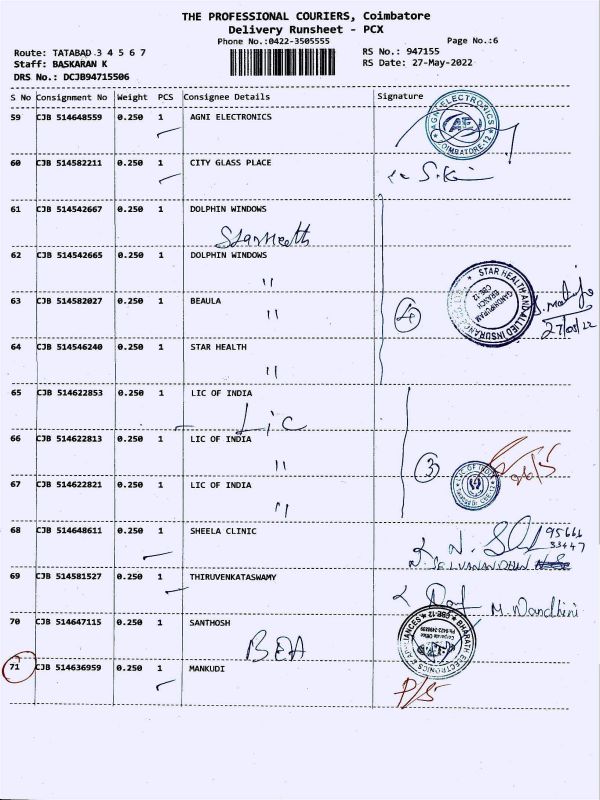 THE PROFESSIONAL COURIERS, Coimbatore
Delivery Runsheet - PCX
Phone No.:0422-3505555
Page No.:6
Route: TATABAD 3 4 5 6 7
RS No.: 947155
Staff: BASKARAN K
RS Date: 27-May-2022
DRS No.: DCJB94715506
S No Consignment No Weight PCS Consignee Details Signature
59 CJB 514648559 0.250 1 AGNI ELECTRONICS
AGNI ELECTRONICS
AE
COIMBATORE-12
60 CJB 514582211 0.250 1 CITY GLASS PLACE
61 CJB 514542667 0.250 1 DOLPHIN WINDOWS
Star Health
62 CJB 514542665 0.250 1 DOLPHIN WINDOWS
"
63 CJB 514582027 0.250 1 BEAULA
"
4
STAR HEALTH AND ALLIED INSURANCE
GANDHIPURAM
BRANCH
CBE-12
27/05/22
64 CJB 514546240 0.250 1 STAR HEALTH
"
65 CJB 514622853 0.250 1 LIC OF INDIA
Lic
66 CJB 514622813 0.250 1 LIC OF INDIA
"
3
67 CJB 514622821 0.250 1 LIC OF INDIA
"
LIC OF INDIA
68 CJB 514648611 0.250 1 SHEELA CLINIC
95666
33447
N. SELVANANDHAN
69 CJB 514581527 0.250 1 THIRUVENKATASWAMY
M. Nandhini
70 CJB 514647115 0.250 1 SANTHOSH
BEA
BHARATH ELECTRONICS & APPLIANCES
Corporate Office
CBE-12
71 CJB 514636959 0.250 1 MANKUDI
P/S